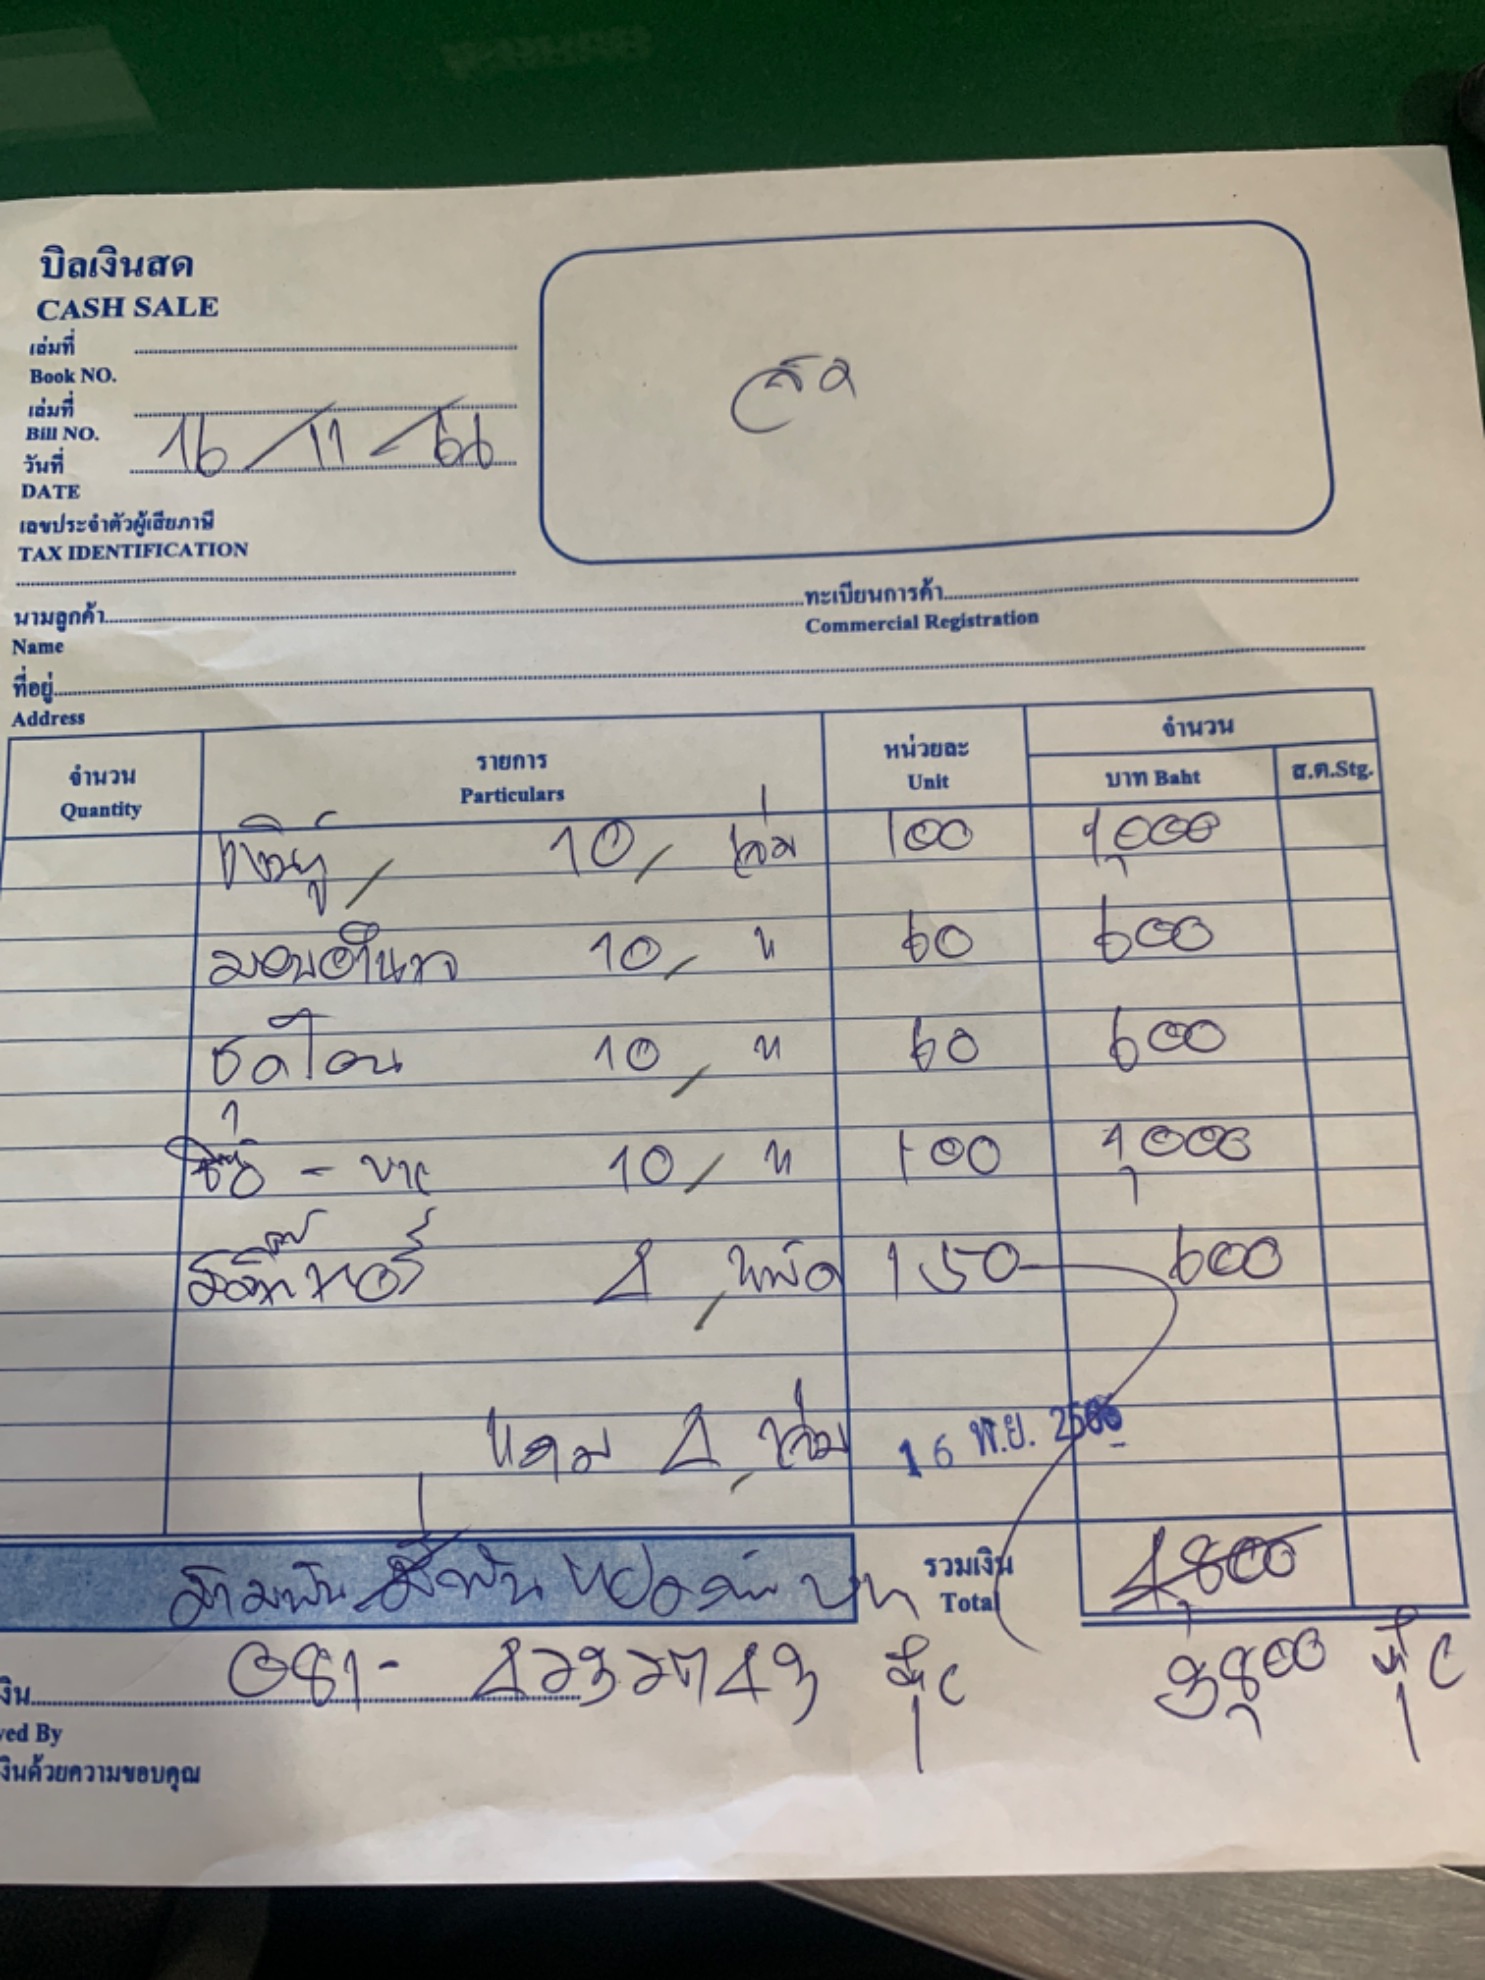 บิลเงินสด
CASH SALE
เล่มที่
Book NO.
เล่มที่
Bill NO.
วันที่ 16/11/66
DATE
เลขประจำตัวผู้เสียภาษี
TAX IDENTIFICATION
นามลูกค้า ทะเบียนการค้า
Name Commercial Registration
ที่อยู่
Address
จำนวน รายการ หน่วยละ จำนวน
Quantity Particulars Unit บาท Baht ส.ต.Stg.
เงินกู้ 10 เล่ม 100 1,000
มอบอำนาจ 10 " 60 600
ชุดโอน 10 " 60 600
ซื้อ - ขาย 10 " 100 1,000
4 แพ็ค 150 600
แถม 4 เล่ม 16 พ.ย. 2566
สามพัน สี่พันแปดร้อยบาท รวมเงิน 4800
Total
งิน 081-4232743 3,800
ved By
งินด้วยความขอบคุณ